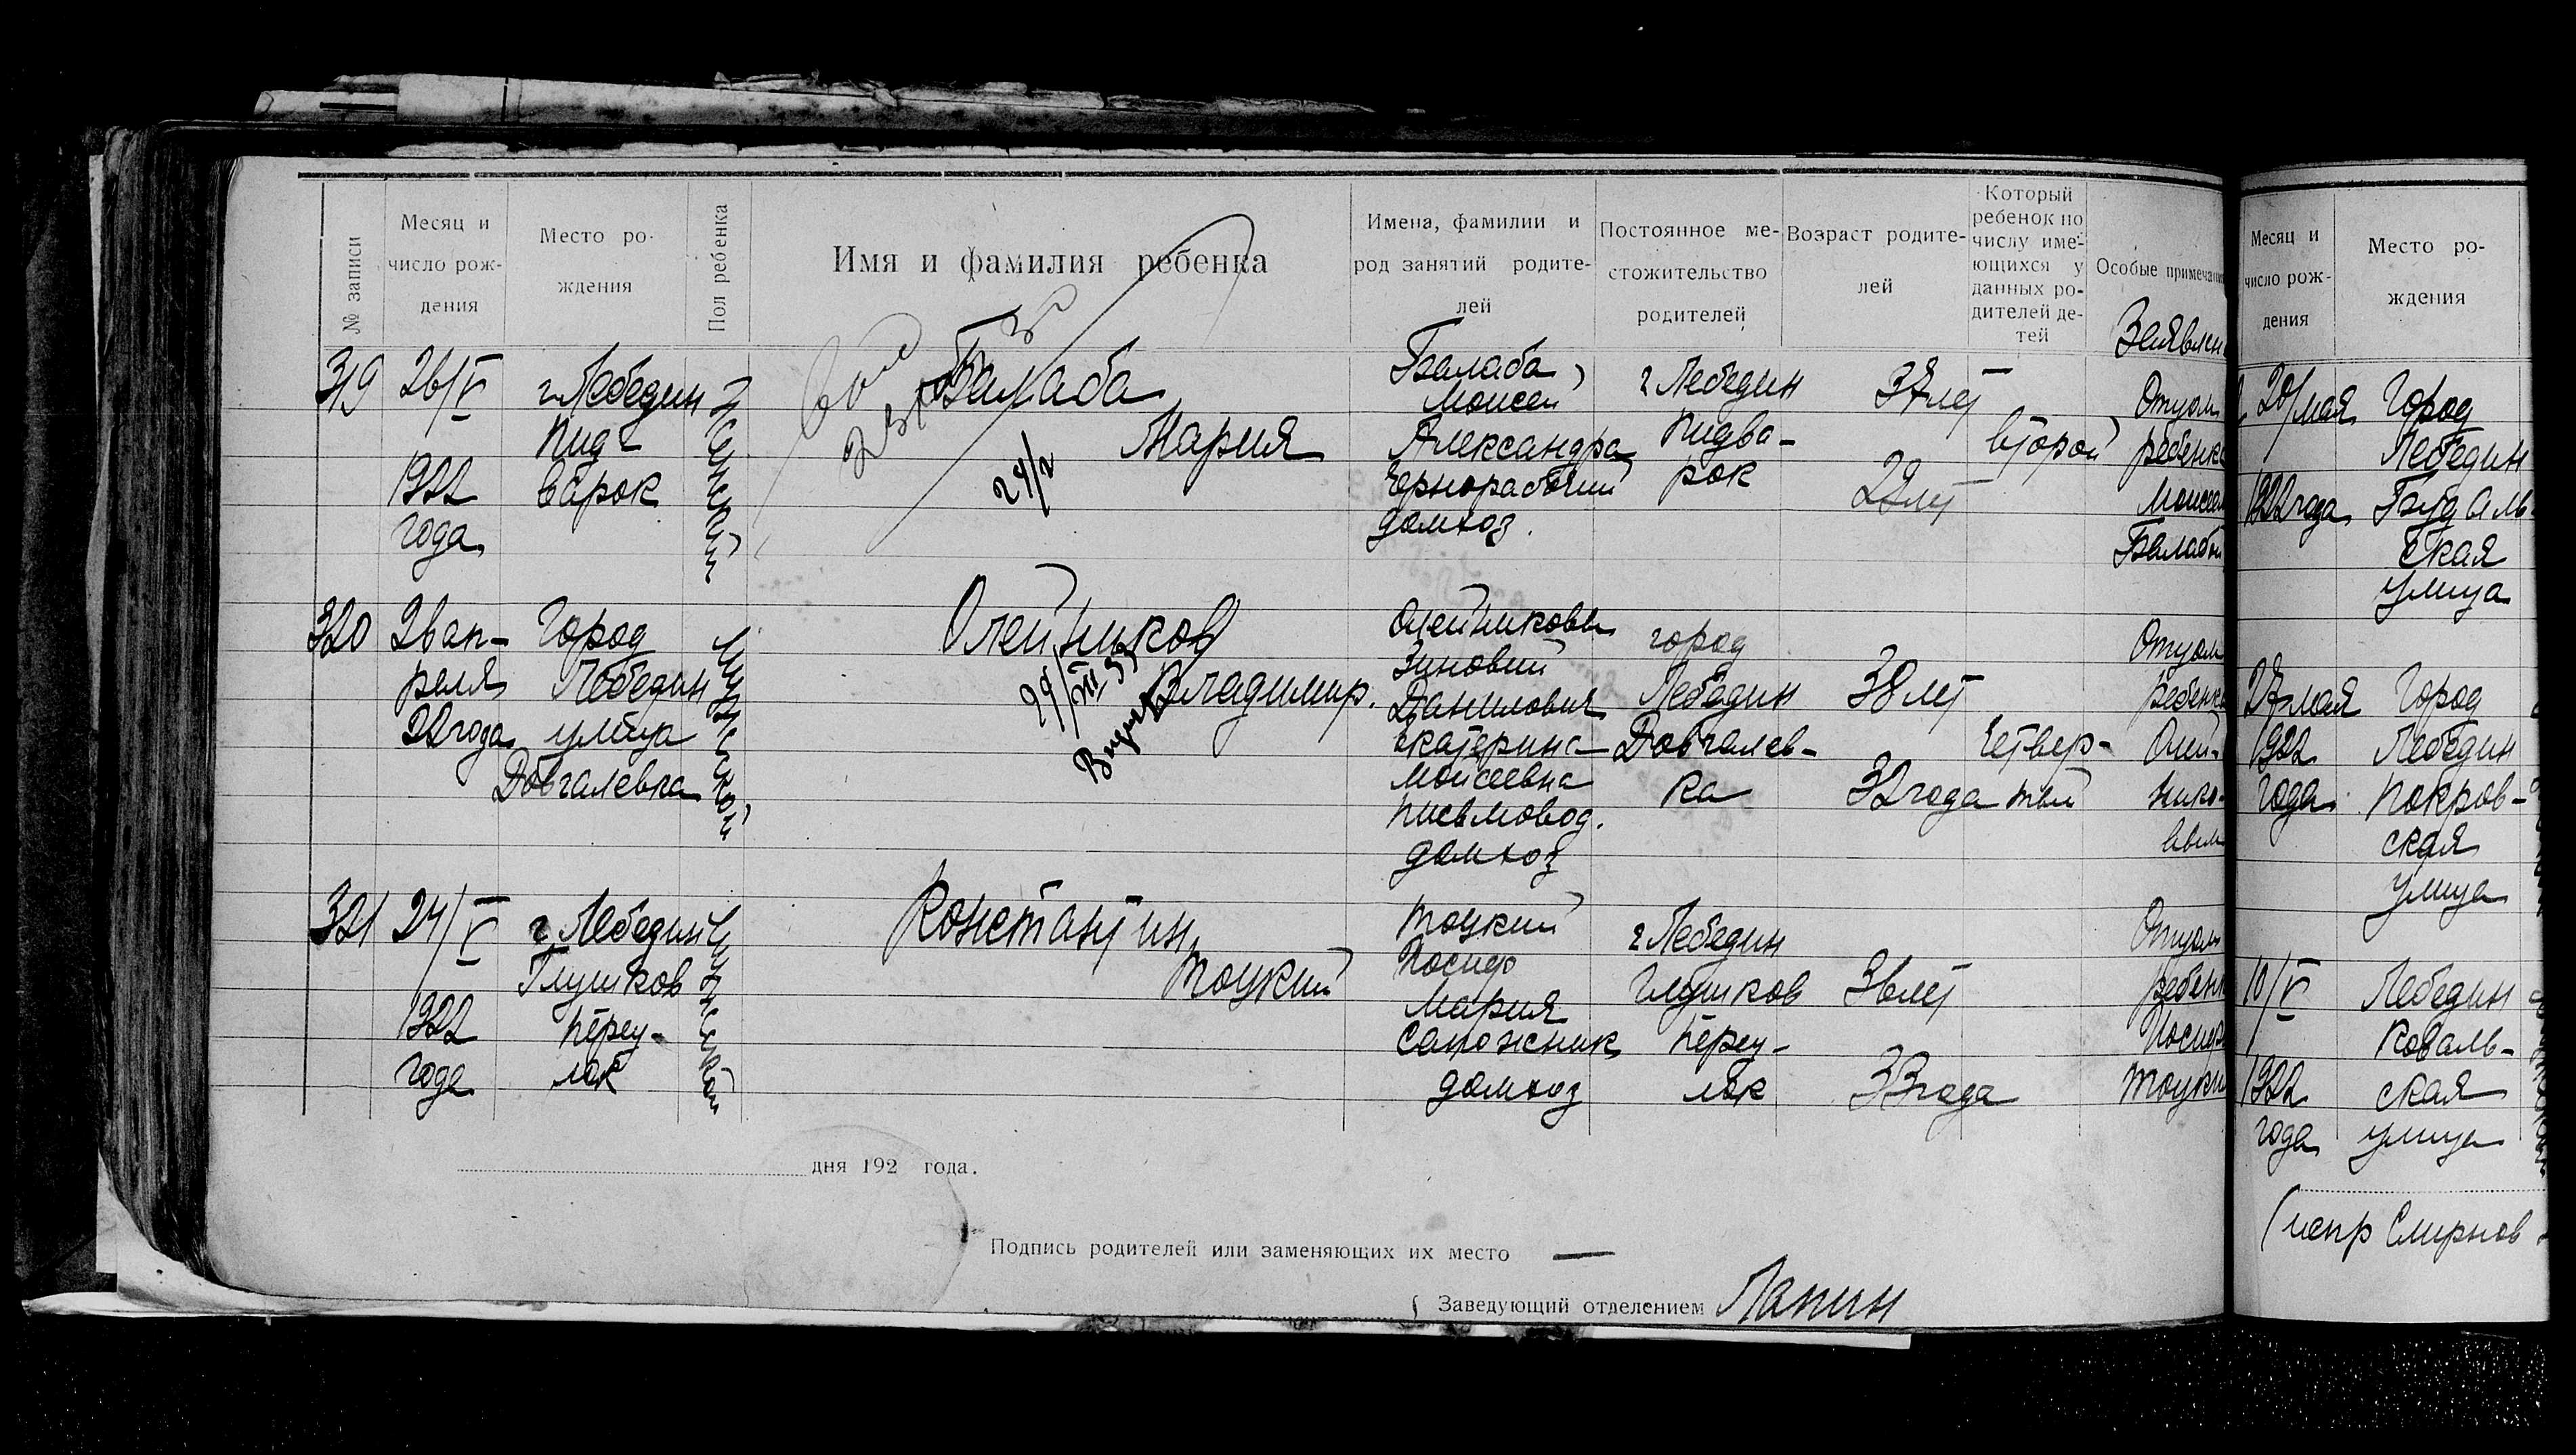 № записи
Месяц и
число рож-
дения
Место ро-
ждения
Пол ребенка
Имя и фамилия ребенка
Имена, фамилии и
род занятий родите-
лей
Постоянное ме-
стожительство
родителей
Возраст родите-
лей
Который
ребенок по
числу име-
ющихся у
данных ро-
дителей де-
тей
Особые примечан
Заявлен
319
26/V
1922
года
г Лебедин
Пид-
варок
Женский
Балаба
Мария
24/2
Балаба
Моисей
Александра
Чернорабочий
домхоз.
г Лебедин
Пидва-
рок
37 лет
22 лет
второй
Отцом
ребенка
Моисеем
Балабой
320
2 ап-
реля
22 года
Город
Лебедин
улица
Довгалевка
Мужской
Олейников
Владимир.
29/XII 33
Олейниковы
Зиновий
Данилович
Екатерина
Моисеевна
письмовод.
домхоз
город
Лебедин
Довгалев-
ка
38 лет
32 года
Четвер-
тый
Отцом
ребенка
Олей-
нико-
вым
321
24/V
1922
года
г. Лебедин
Глушков
переу-
лок
Мужской
Константин
Тоцкий
Тоцкий
Иосиф
Мария
Сапожник
домхоз
г Лебедин
Глушков
переу-
лок
36 лет
33 года
Отцом
ребенк
Иосиф
Тоцки
дня 192 года.
Подпись родителей или заменяющих их место —
Заведующий отделением Лапин
Месяц и
число рож-
дения
Место ро-
ждения
20/мая
1922 года
Город
Лебедин
ская
улица
27 мая
1922
года
Город
Лебедин
Покров-
ская
улица
10/V
1922
года
Лебедин
Коваль-
ская
улица
Смирнов